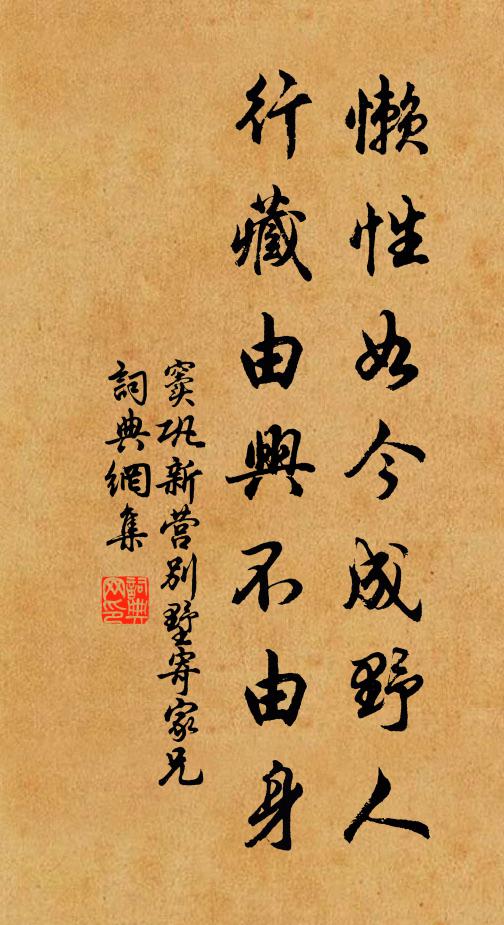 懒性如今成野人
行藏由興不由身
窦巩新营别墅寄家兄
詞典網集
詞典网印